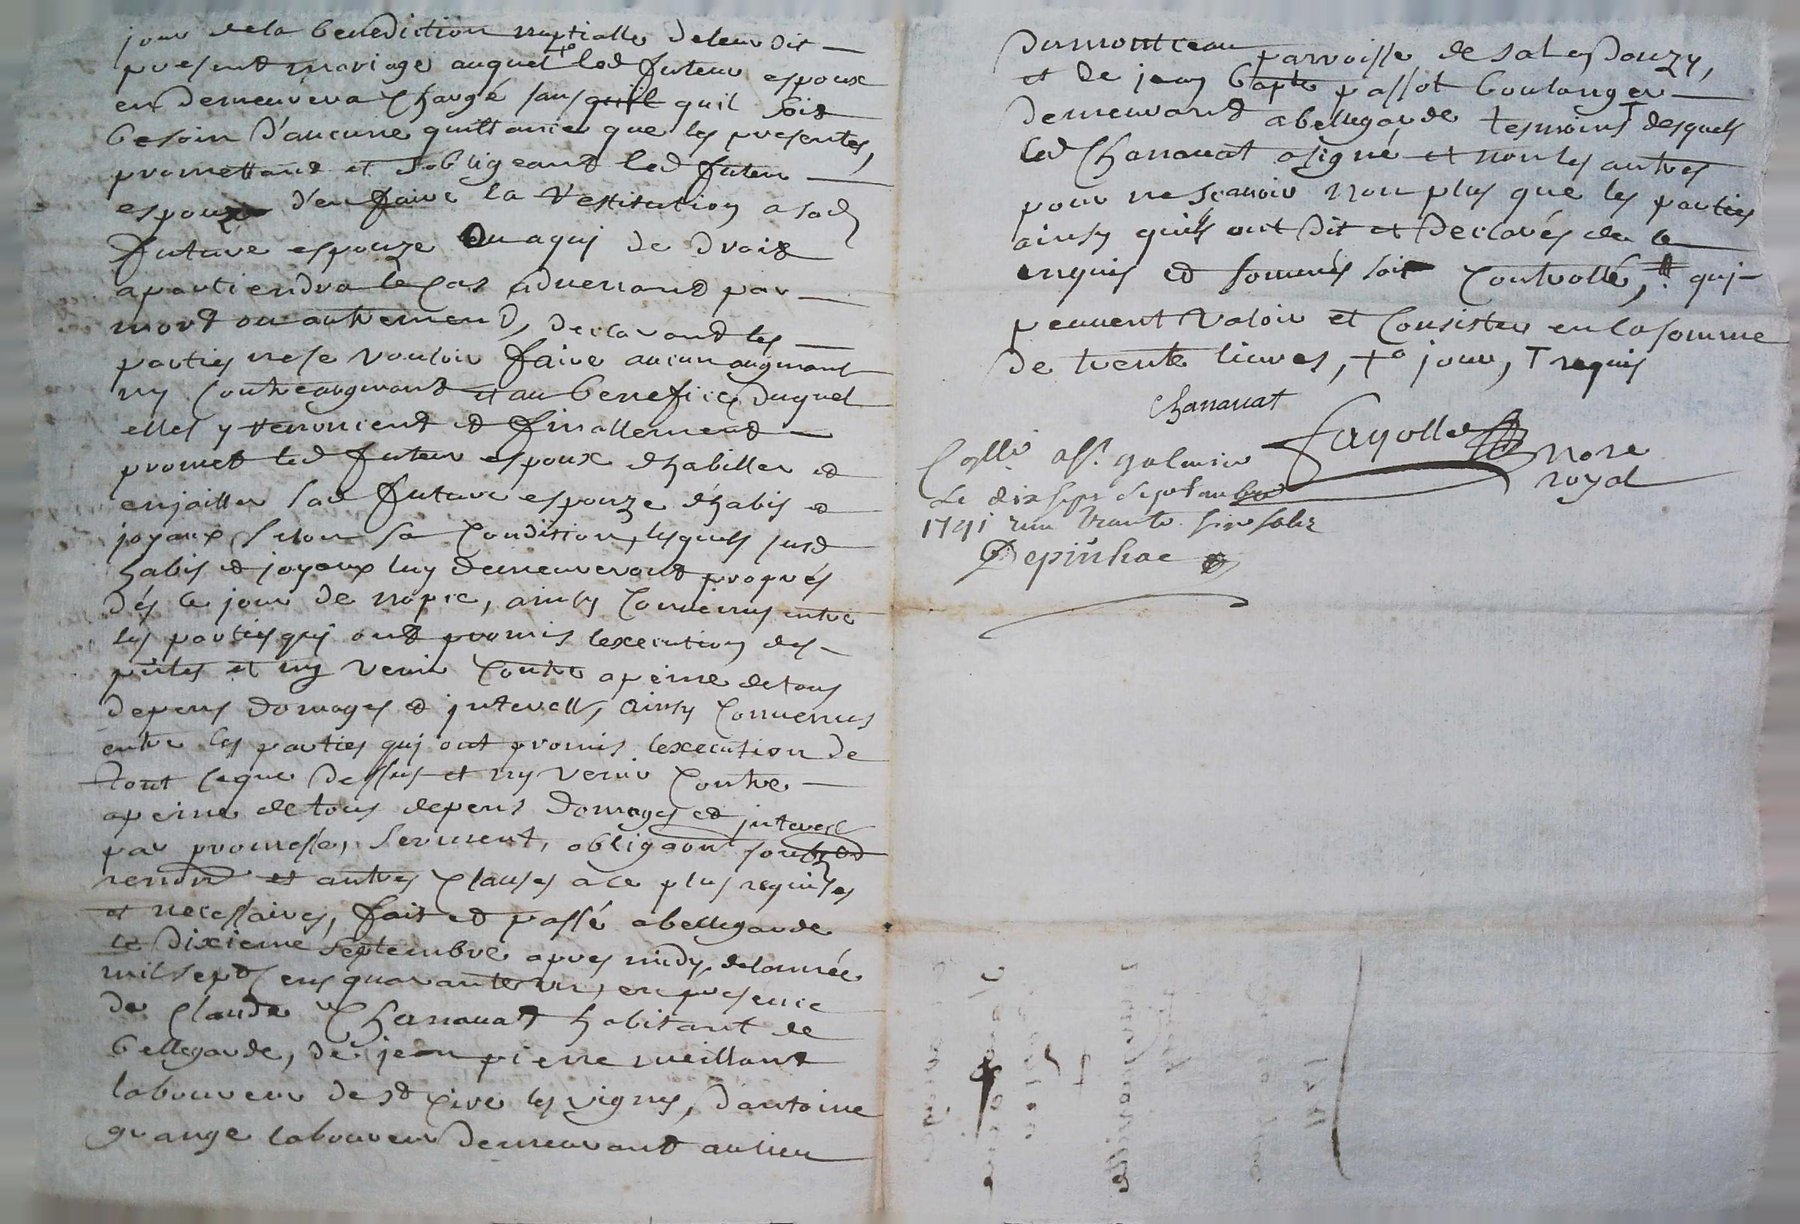 jour dela benediction nuptialle deleur dit
present mariage auquel +° led futeur espoux
en demeurera chargé sans quil quil soit
besoin d'aucune quittance que les presentes,
promettant et sobligeant led futeur
espoux d'en faire la restitution a sad
future espouze ou a quj de droit
apartiendra le cas advenant par
mort ou autrement, declarant les
parties ne se vouloir faire aucun augmant
ny contreaugmant et au benefice duquel
elles y renoncent et finallement
promet led futeur espoux d'habiller et
enjoiller sad future espouze d'habis et
joyaux selon sa condition, lesquels susd
habis et joyaux luy demeureront proprés
dés le jour de nopce, ainsy convenus entre
les parties quj ont promis lexecution des
pntes et ny venir contre a peine de tous
depens domages et jnterells, ainsy convenus
entre les parties quj ont promis lexecution de
tout ceque dessus et ny venir contre
apeine de tous depens domages et jnterest
par promesse, serment, obligaon
renon et autres clauses a ce plus requises
et necessaires, fait et passé a bellegarde
le dixieme septembre apres midy, delannée
mil sept cens quarante un, en presence
de claude Chanauat habitant de
bellegarde, de jean pierre meillant
laboureur de st Cire les vignes, d'antoine
grange laboureur demeurant au lieu
dumontceau parroisse de salesdouzy,
et de jean bapte passot boulanger
demeurant a bellegarde tesmoins T desquels
led Chanauat a signé et non les autres
pour ne scauoir non plus que les parties
ainsy quils ont dit et declarés de ce
enquis et sommés soit controllé, # quj
peuuent valoir et consister en la somme
de trente liures, +° jour, T requis
Chanauat
Collé aff. galmier Fayolle nore
royal
Le dix sept septambre
1741 reçu trante six solz
Depinhac